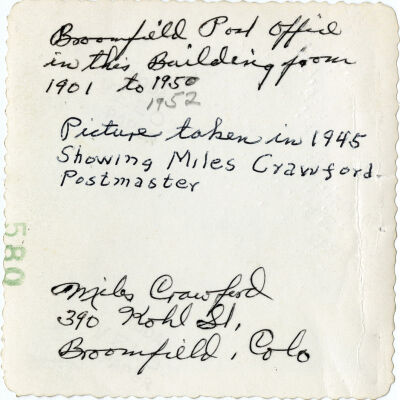 Broomfield Post Office
in this Building from
1901 to 1950
1952
Picture taken in 1945
Showing Miles Crawford.
Postmaster
580
Miles Crawford
390 Kohl St,
Broomfield, Colo